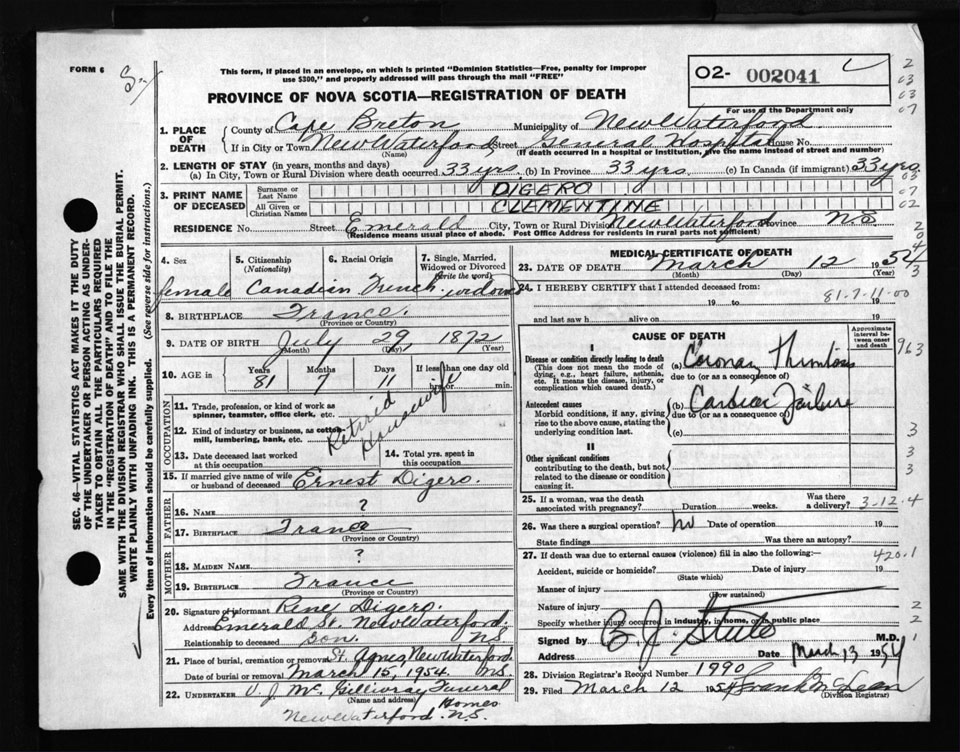 FORM 6
This form, if placed in an envelope, on which is printed "Dominion Statistics—Free, penalty for improper
use $300," and properly addressed will pass through the mail "FREE"
O2- 002041
PROVINCE OF NOVA SCOTIA—REGISTRATION OF DEATH
For use of the Department only
1. PLACE OF DEATH
County of Cape Breton Municipality of New Waterford
If in City or Town New Waterford Street General Hospital House No.
(Name) (If death occurred in a hospital or institution, give the name instead of street and number)
2. LENGTH OF STAY (in years, months and days)
(a) In City, Town or Rural Division where death occurred 33 yrs. (b) In Province 33 yrs. (c) In Canada (if immigrant) 33 yrs.
3. PRINT NAME OF DECEASED
Surname or Last Name DIGERO
All Given or Christian Names CLEMENTINE
RESIDENCE No. Street Emerald City, Town or Rural Division New Waterford Province N.S.
(Residence means usual place of abode. Post Office Address for residents in rural parts not sufficient)
4. Sex 5. Citizenship (Nationality) 6. Racial Origin 7. Single, Married, Widowed or Divorced (Write the word)
female Canadian French widowed
8. BIRTHPLACE France.
(Province or Country)
9. DATE OF BIRTH July 29, 1872
(Month) (Day) (Year)
10. AGE in Years Months Days If less than one day old
81 7 11 hrs. or min.
OCCUPATION
11. Trade, profession, or kind of work as spinner, teamster, office clerk, etc.
12. Kind of industry or business, as cotton mill, lumbering, bank, etc.
Retired Housewife
13. Date deceased last worked at this occupation
14. Total yrs. spent in this occupation
15. If married give name of wife or husband of deceased Ernest Digero.
FATHER
16. Name ?
17. Birthplace France
(Province or Country)
MOTHER
18. Maiden Name ?
19. Birthplace France
(Province or Country)
20. Signature of informant Rene Digero.
Address Emerald St. New Waterford, N.S.
Relationship to deceased Son.
21. Place of burial, cremation or removal St. Agnes New Waterford N.S.
Date of burial or removal March 15, 1954
22. UNDERTAKER V. J. Mc Gillivray Funeral Homes
(Name and address)
New Waterford. N.S.
MEDICAL CERTIFICATE OF DEATH
23. DATE OF DEATH March 12 1954
(Month) (Day) (Year)
24. I HEREBY CERTIFY that I attended deceased from:
19 to 19
and last saw h alive on 19
81-7-11-00
CAUSE OF DEATH
Approximate interval between onset and death
I
Disease or condition directly leading to death (This does not mean the mode of dying, e.g., heart failure, asthenia, etc. It means the disease, injury, or complication which caused death.)
(a) Coronary Thrombosis
due to (or as a consequence of)
Antecedent causes
Morbid conditions, if any, giving rise to the above cause, stating the underlying condition last.
(b) Cardiac Failure
due to (or as a consequence of)
(c)
II
Other significant conditions contributing to the death, but not related to the disease or condition causing it.
963
25. If a woman, was the death associated with pregnancy? Duration weeks. Was there a delivery?
3-12-4
26. Was there surgical operation? no Date of operation 19
State findings Was there an autopsy?
27. If death was due to external causes (violence) fill in also the following:—
420.1
Accident, suicide or homicide? Date of injury 19
(State which)
Manner of injury
(How sustained)
Nature of injury
Specify whether injury occurred in industry, in home, or in public place
Signed by M.D.
Address Date March 13 1954
28. Division Registrar's Record Number 1990
29. Filed March 12 1954
(Division Registrar)
SEC. 46—VITAL STATISTICS ACT MAKES IT THE DUTY
OF THE UNDERTAKER OR PERSON ACTING AS UNDER-
TAKER TO OBTAIN ALL THE PARTICULARS REQUIRED
IN THE "REGISTRATION OF DEATH" AND TO FILE THE
SAME WITH THE DIVISION REGISTRAR WHO SHALL ISSUE THE BURIAL PERMIT.
WRITE PLAINLY WITH UNFADING INK. THIS IS A PERMANENT RECORD.
Every item of Information should be carefully supplied. (See reverse side for instructions.)